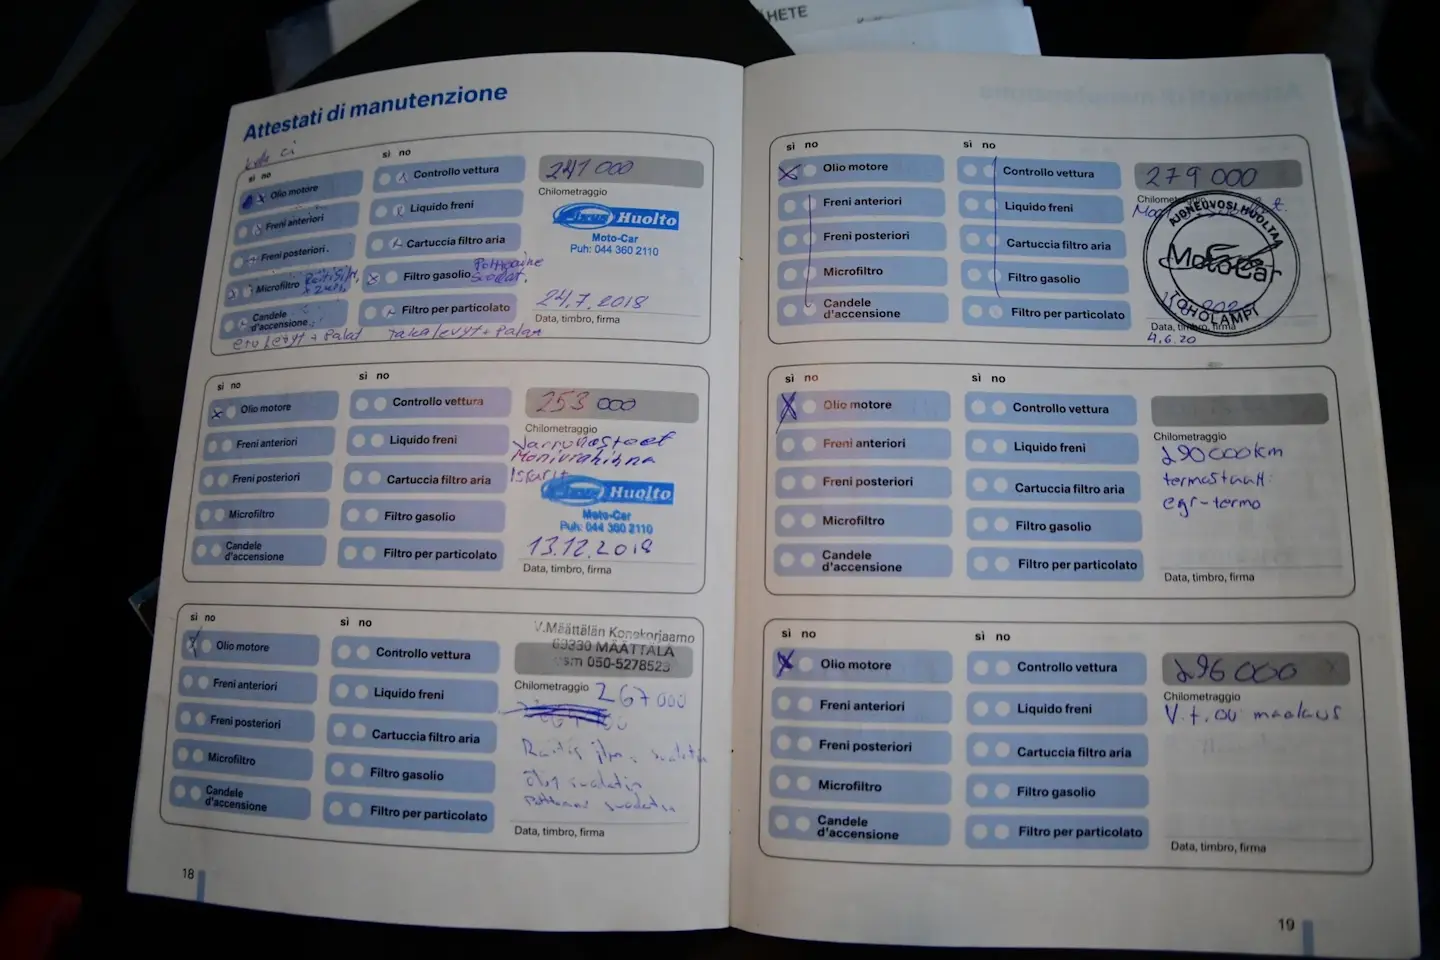 HETE
Attestati di manutenzione
sì no
sì no
Olio motore
Freni anteriori
Freni posteriori
Microfiltro
Candele
d'accensione
Controllo vettura
Liquido freni
Cartuccia filtro aria
Filtro gasolio
Filtro per particolato
etu levyt + palat takalevyt + palat
241 000
Chilometraggio
Huolto
Moto-Car
Puh: 044 360 2110
24.7.2018
Data, timbro, firma
sì no
sì no
Olio motore
Freni anteriori
Freni posteriori
Microfiltro
Candele
d'accensione
Controllo vettura
Liquido freni
Cartuccia filtro aria
Filtro gasolio
Filtro per particolato
253 000
Chilometraggio
Moniurahihna
Huolto
Moto-Car
Puh: 044 360 2110
13.12.2018
Data, timbro, firma
sì no
sì no
Olio motore
Freni anteriori
Freni posteriori
Microfiltro
Candele
d'accensione
Controllo vettura
Liquido freni
Cartuccia filtro aria
Filtro gasolio
Filtro per particolato
V.Määttälän Konekorjaamo
69330 MÄÄTTÄLÄ
gsm 050-5278523
Chilometraggio 267 000
Data, timbro, firma
18
sì no
sì no
Olio motore
Freni anteriori
Freni posteriori
Microfiltro
Candele
d'accensione
Controllo vettura
Liquido freni
Cartuccia filtro aria
Filtro gasolio
Filtro per particolato
279 000
Chilometraggio
AJONEUVOSI HUOLTAA
MotoCar
TOHOLAMPI
Data, timbro, firma
4.6.20
sì no
sì no
Olio motore
Freni anteriori
Freni posteriori
Microfiltro
Candele
d'accensione
Controllo vettura
Liquido freni
Cartuccia filtro aria
Filtro gasolio
Filtro per particolato
Chilometraggio
290 000km
termostaatti
egr-termo
Data, timbro, firma
sì no
sì no
Olio motore
Freni anteriori
Freni posteriori
Microfiltro
Candele
d'accensione
Controllo vettura
Liquido freni
Cartuccia filtro aria
Filtro gasolio
Filtro per particolato
296 000
Chilometraggio
Data, timbro, firma
19